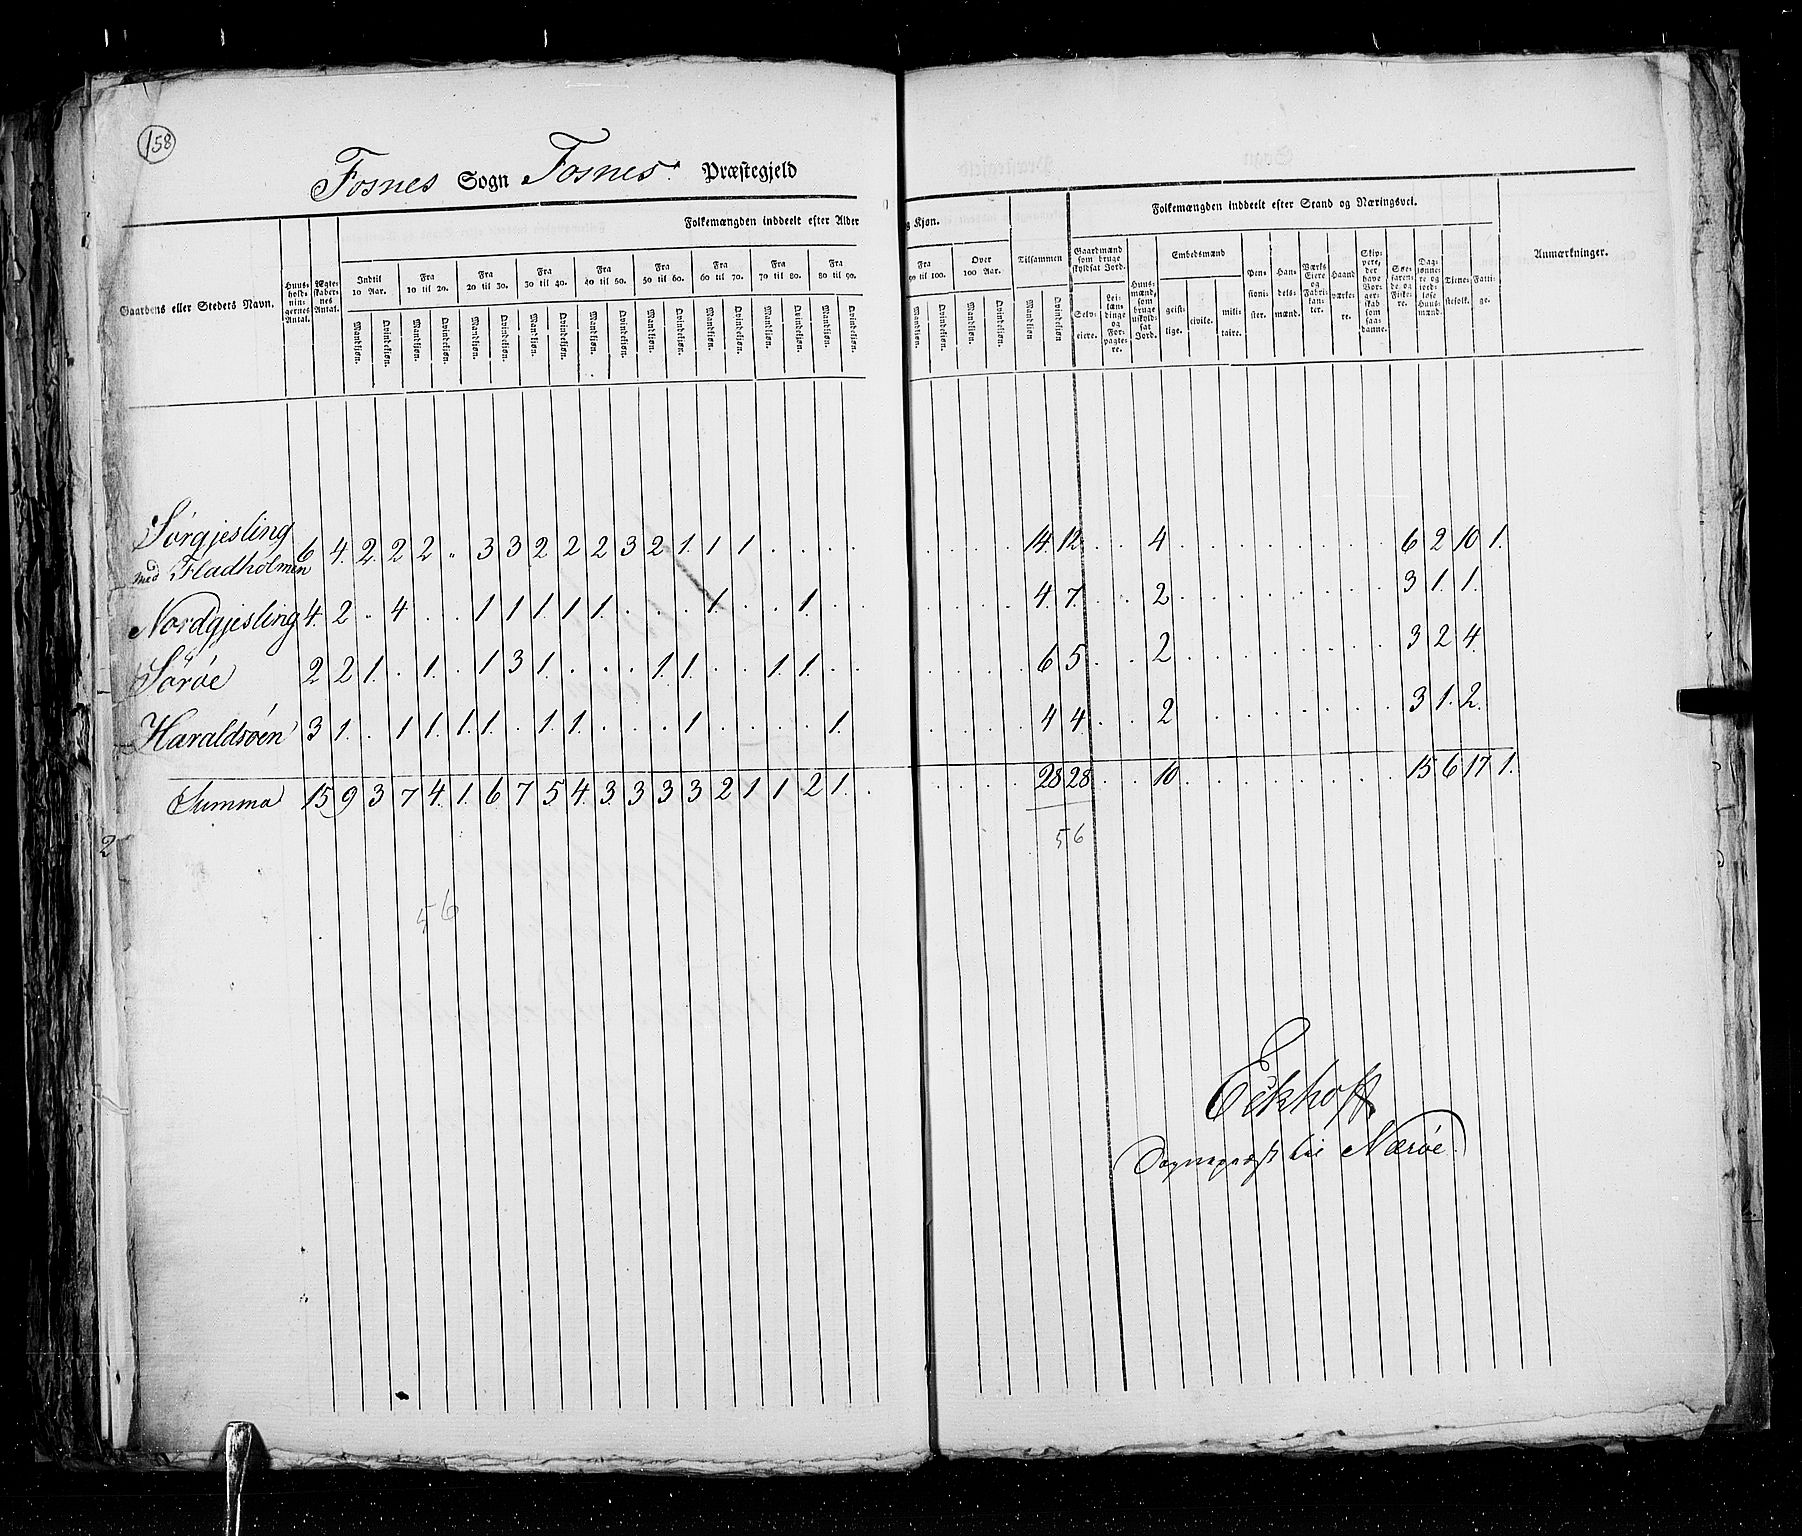 158
Fosnes Sogn Fosnes Præstegjeld
Folkemængden inddeelt efter Alder og Kjøn.
Folkemængden inddeelt efter Stand og Næringsvei.
Gaardens eller Stedets Navn. Huusholdningernes Antal. Ægteskabernes Antal. Indtil 10 Aar. Fra 10 til 20. Fra 20 til 30. Fra 30 til 40. Fra 40 til 50. Fra 50 til 60. Fra 60 til 70. Fra 70 til 80. Fra 80 til 90. Fra 90 til 100. Over 100 Aar. Tilsammen
Mandkjøn. Qvindekjøn. Mandkjøn. Qvindekjøn. Mandkjøn. Qvindekjøn. Mandkjøn. Qvindekjøn. Mandkjøn. Qvindekjøn. Mandkjøn. Qvindekjøn. Mandkjøn. Qvindekjøn. Mandkjøn. Qvindekjøn. Mandkjøn. Qvindekjøn. Mandkjøn. Qvindekjøn. Mandkjøn. Qvindekjøn. Mandkjøn Qvindekjøn
Gaardmænd som bruge skyldsat Jord. Selveiere. Leilændinge og Forpagtere. Huusmænd, som bruge uskyldsat Jord. Embedsmænd geistlige. civile. militaire. Pensionister. Handelsmænd. Værks Eiere og Fabrikanter. Haandværkere. Skippere, der have Borgerskab som saadanne. Søefarende og Fiskere. Daglønnere og jordløse Huusmænd. Tjenestefolk. Fattige. Anmærkninger.
Sørgjesling
med Fladholmen 6 4. 2. 2 2 „ 3 3 2 2 2 3 2 1. 1 1 . . . . . . . . 14. 12 . . 4 . . . . . . . . 6 2 10 1.
Nordgjesling 4. 2 . 4 . . 1 1 1. 1 1. . . . 1. . . 1. . . . . . . 4. 7. . . 2 . . . . . . . . 3 1. 1.
Sørøe 2 2 1. . 1. . 1 3 1. . . . 1. 1. . . 1 1. . . . . . . 6 5 . . 2 . . . . . . . . 3 2 4.
Haraldsøen 3 1. . 1 1. 1. 1. . 1. 1. . . . 1 . . . . 1. . . . . 4 4. . . 2 . . . . . . . . 3 1. 2.
Summa 15 9 3 7 4. 1. 6 7 5 4. 3. 3 3 3 2 1 1 2 1. . . . . . 28 28 . . 10 . . . . . . . . 15 6 17 1.
56
2
56
Eckhoff
Sognepræst til Nærøe.